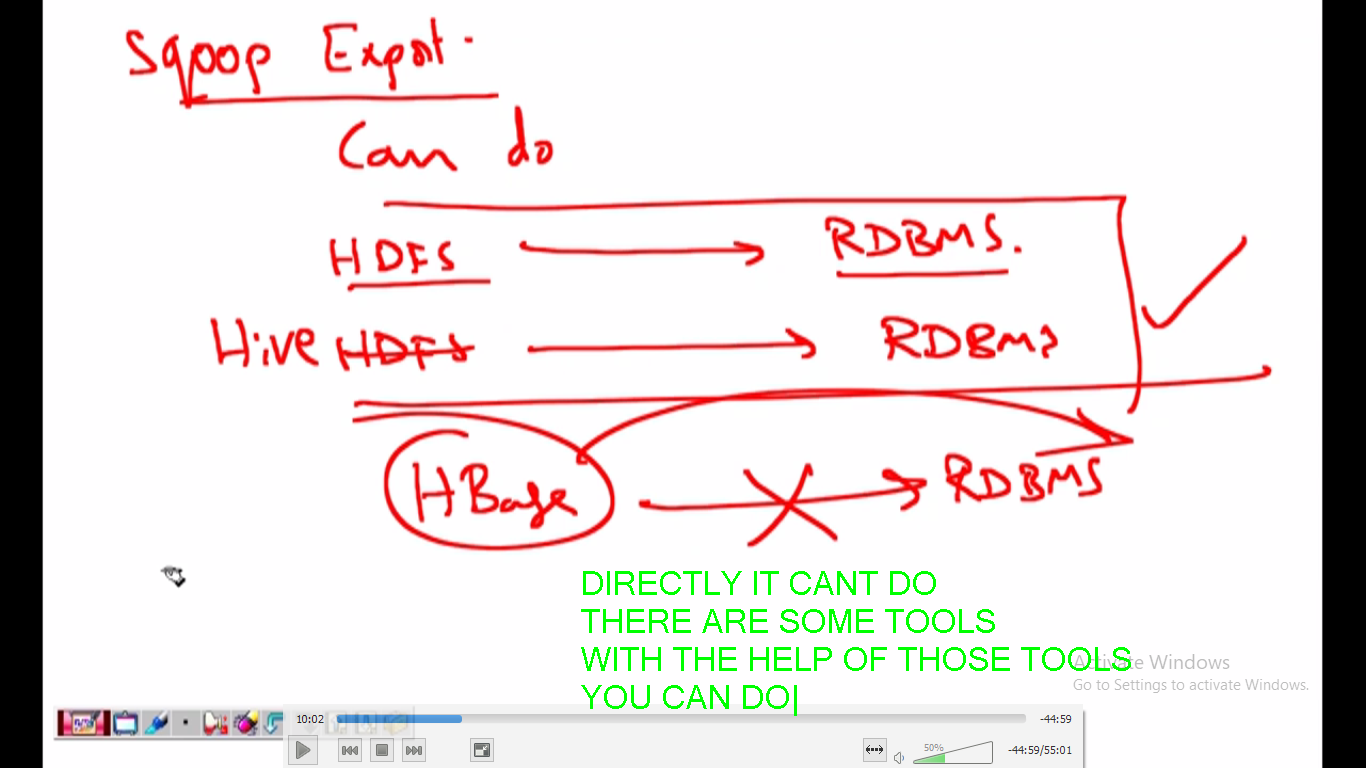 Sqoop Export.
Can do
HDFS → RDBMS.
Hive HDFS → RDBMS
HBase → RDBMS
DIRECTLY IT CANT DO
THERE ARE SOME TOOLS
WITH THE HELP OF THOSE TOOLS
YOU CAN DO
Activate Windows
Go to Settings to activate Windows.
10:02
-44:59
50%
-44:59/55:01